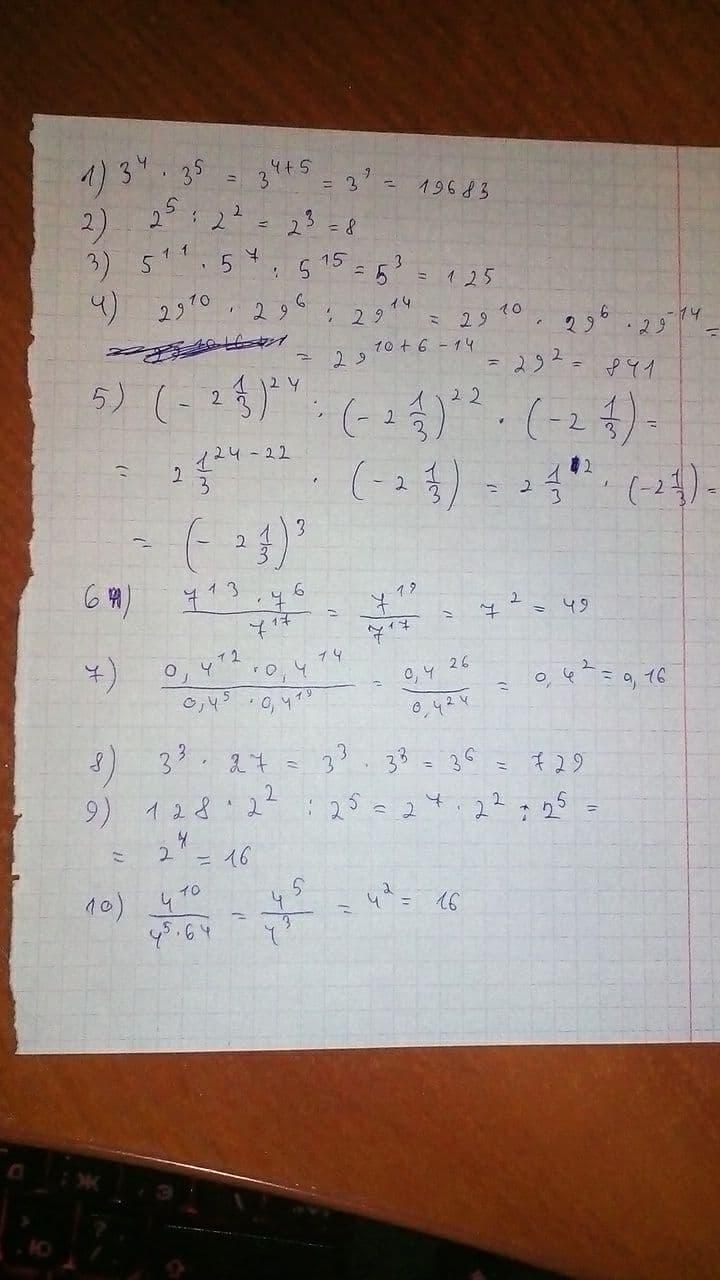 1) 3^4 · 3^5 = 3^{4+5} = 3^9 = 19683
2) 2^5 : 2^2 = 2^3 = 8
3) 5^{11} · 5^7 : 5^{15} = 5^3 = 125
4) 29^{10} · 29^6 : 29^{14} = 29^{10} · 29^6 · 29^{-14} =
= 29^{10+6-14} = 29^2 = 841
5) (-2 1/3)^{24} : (-2 1/3)^{22} · (-2 1/3) =
= 2 1/3^{24-22} · (-2 1/3) = 2 1/3^2 · (-2 1/3) =
= (-2 1/3)^3
6) 7^{13} · 7^6 / 7^{17} = 7^{19} / 7^{17} = 7^2 = 49
7) 0,4^{12} · 0,4^{14} / 0,4^5 · 0,4^{19} = 0,4^{26} / 0,4^{24} = 0,4^2 = 0,16
8) 3^3 · 27 = 3^3 · 3^3 = 3^6 = 729
9) 128 · 2^2 : 2^5 = 2^7 · 2^2 : 2^5 =
= 2^4 = 16
10) 4^{10} / 4^5 · 64 = 4^5 / 4^3 = 4^2 = 16
Д ; Ж Э \
. Ю ?